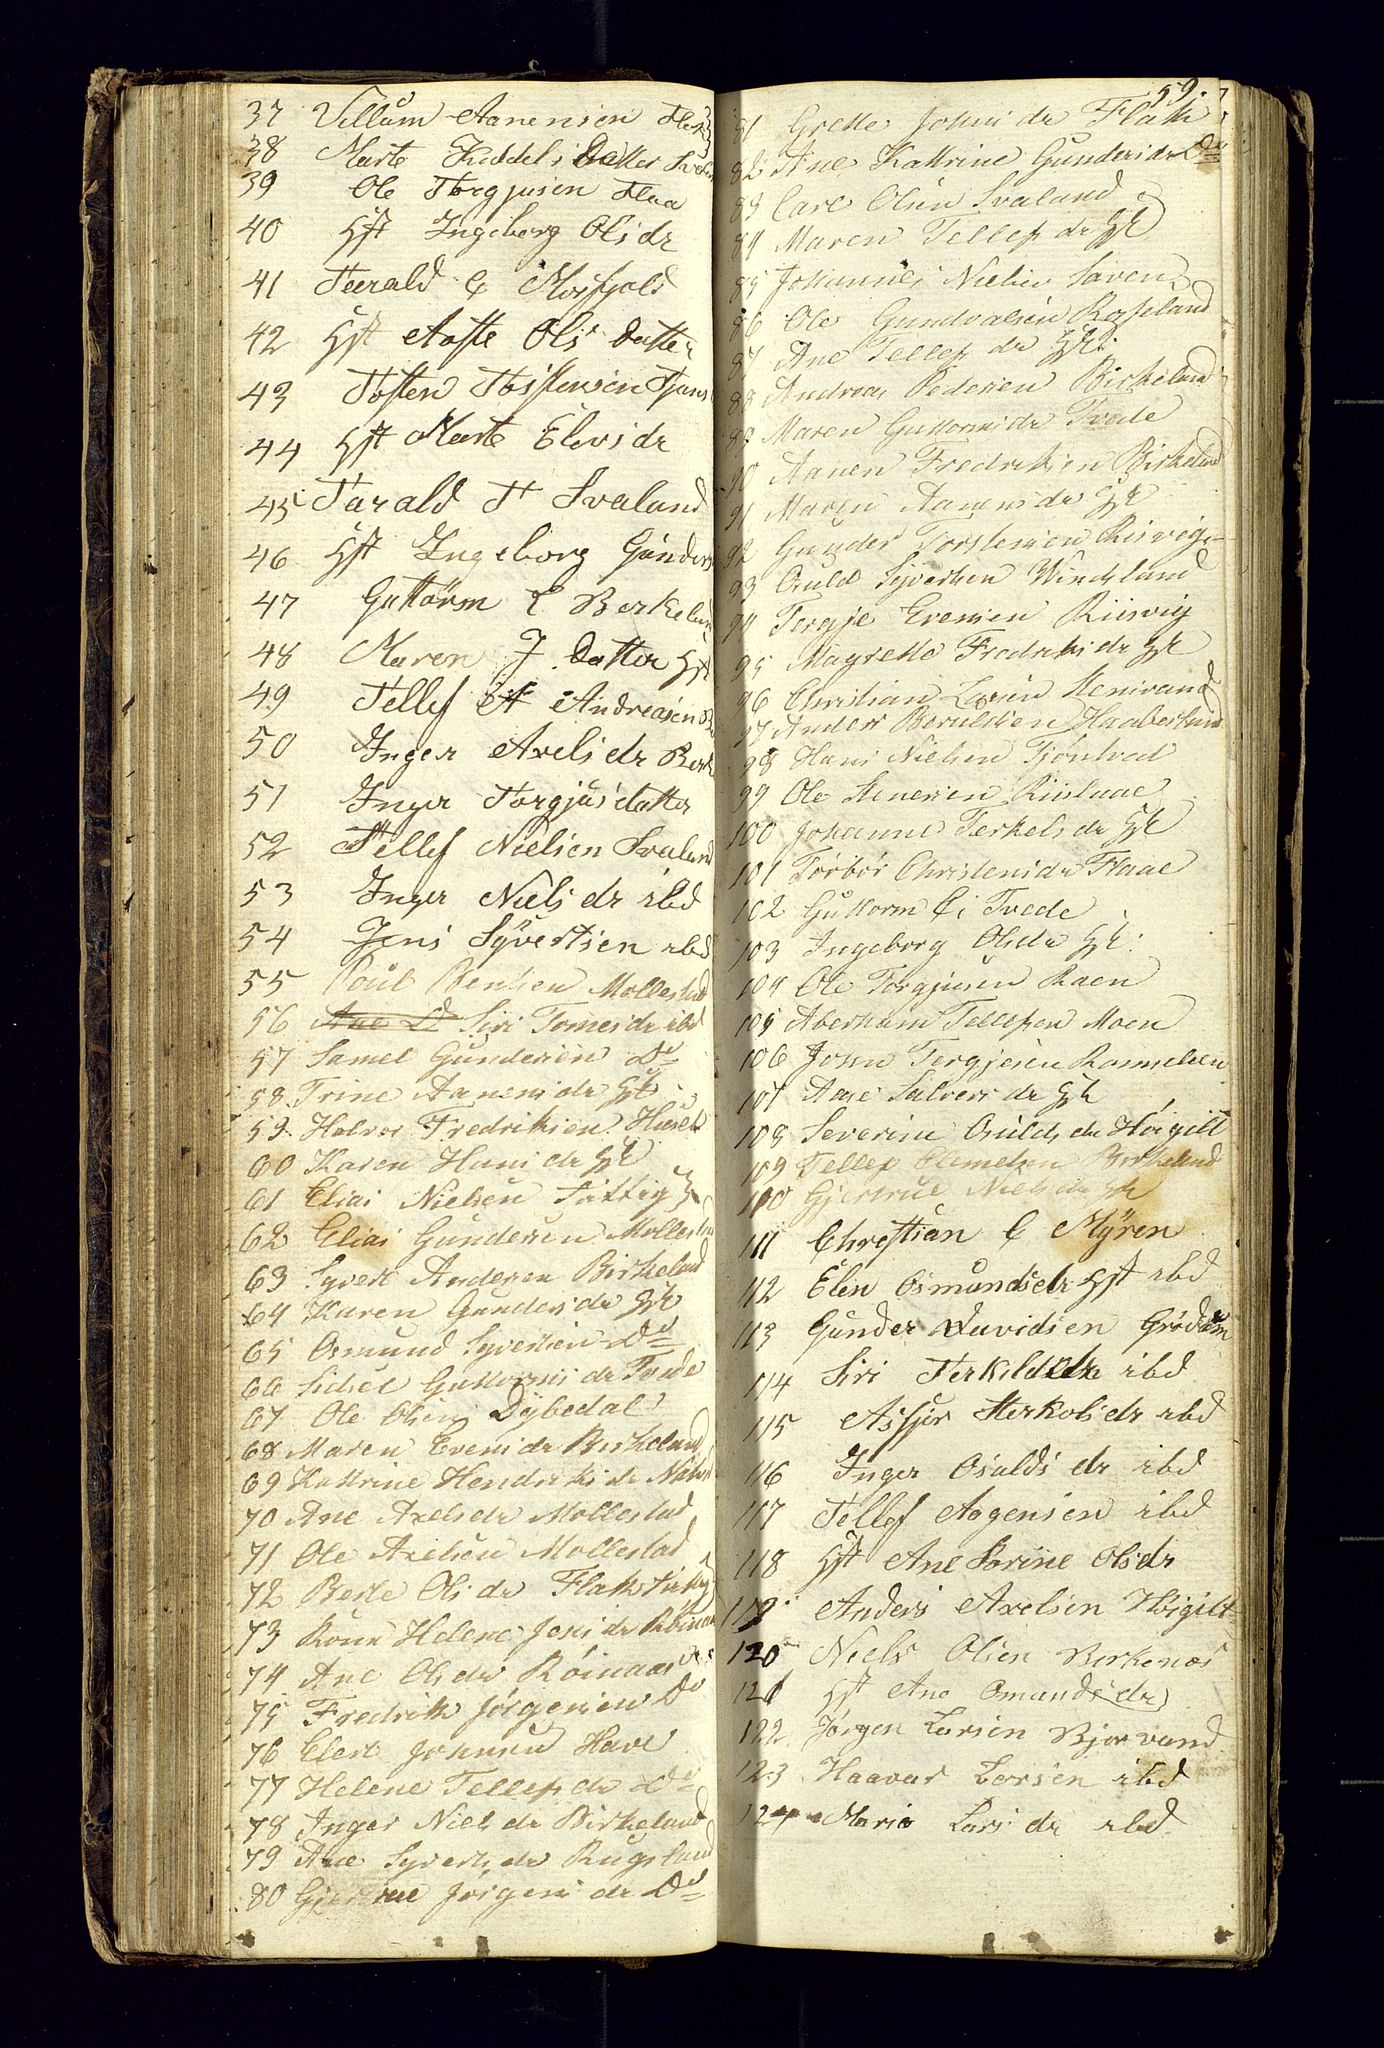 37 Villum Aanensen
38 Marte Kiddels Datter
39 Ole Torgjusen Flaa
40 Hst Ingeborg Olsdr
41 Tarald C Mosfjeld
42 Hst Aaste Ols Datter
43 Tosten Tostensen
44 Hst Marte Elevsdr
45 Tarald T Svaland
46 Hst Ingeborg Gunders
47 Guttorm E Berkelan
48 Maren J. Datter Hst
49 Tellef A Andreasen
50 Inger Axelsdr Berk
51 Inger Torgjusdatter
52 Tellef Nielsen Svaland
53 Inger Nielsdr ibd
54 Jens Syvertsen ibd
55 Poul Bentsen Mollestad
56 Siri Tomesdr ibd
57 Samel Gundersen Do
58 Trine Aanensdr
59 Halvor Fredriksen
60 Karen Hansdr
61 Elias Nielsen
62 Elias Gundersen Mollestad
63 Syvert Andersen Birkeland
64 Karen Gundersdr
65 Osmund Syvertsen Do
66 Sidsel Guttormsdr Tvede
67 Ole Olsen Dybedal
68 Maren Evensdr Birkeland
69 Kattrine Hendriksdr
70 Ane Axelsdr Mollestad
71 Ole Axelsen Mollestad
72 Berte Olsdr Flakk
73 Helene Jensdr
74 Ane Olsdr Röinaas
75 Fredrik Jörgensen Do
76 Elert Johnsen Have
77 Helene Tellefsdr Do
78 Inger Nielsdr Birkeland
79 Ane Syvertsdr Rugsland
80 Gjertrue Jörgensdr Do
59.
81 Grette Johnsdr Flakk
82 Ane Kattrine Gundersdr Do
83 Carl Olsen Svaland
84 Maren Tellefsdr
85 Johannes Nielsen
86 Ole Gundvalsen Rosseland
87 Ane Tellefsdr
88 Andreas Pedersen Birkeland
89 Maren Guttormsdr Tvede
90 Aanen Fredriksen Birkeland
91 Maren Aanensdr
92 Gunder Torstensen Risvig
93 Ould Syvertsen Windsland
94 Tergje Evensen Riisvig
95 Magrette Fredriksdr
96 Christian Larsen
97 Anders Beruldsen Haabesland
98 Hans Nielsen
99 Ole Stenersen Riislaae
100 Johanne Terkelsdr
101 Törbör Christensdr Flaae
102 Guttorm Tvede
103 Ingeborg Olsdr
104 Ole Torgjusen Raen
105 Aberham Tellefsen Moen
106 John Tergjesen
107 Aase Salvesdr
108 Severine Ouldsdr Höigilt
109 Tellef Clemetsen Birkeland
110 Gjertrue Nielsdr
111 Christian C Myren
112 Elen Osmundsdr Hst ibd
113 Gunder Davidsen Grödum
114 Siri Terkildsdr ibd
115 Terkelsdr ibd
116 Inger Osuldsdr ibd
117 Tellef Aagensen ibd
118 Hst Ane Sörine Olsdr
119 Anders Axelsen Höigilt
120 Niels Olsen Berkenæs
121 Hst Ane Omundsdr
122 Jörgen Larsen Bjorvand
123 Haavar Larsen ibd
124 Maria Larsdr ibd